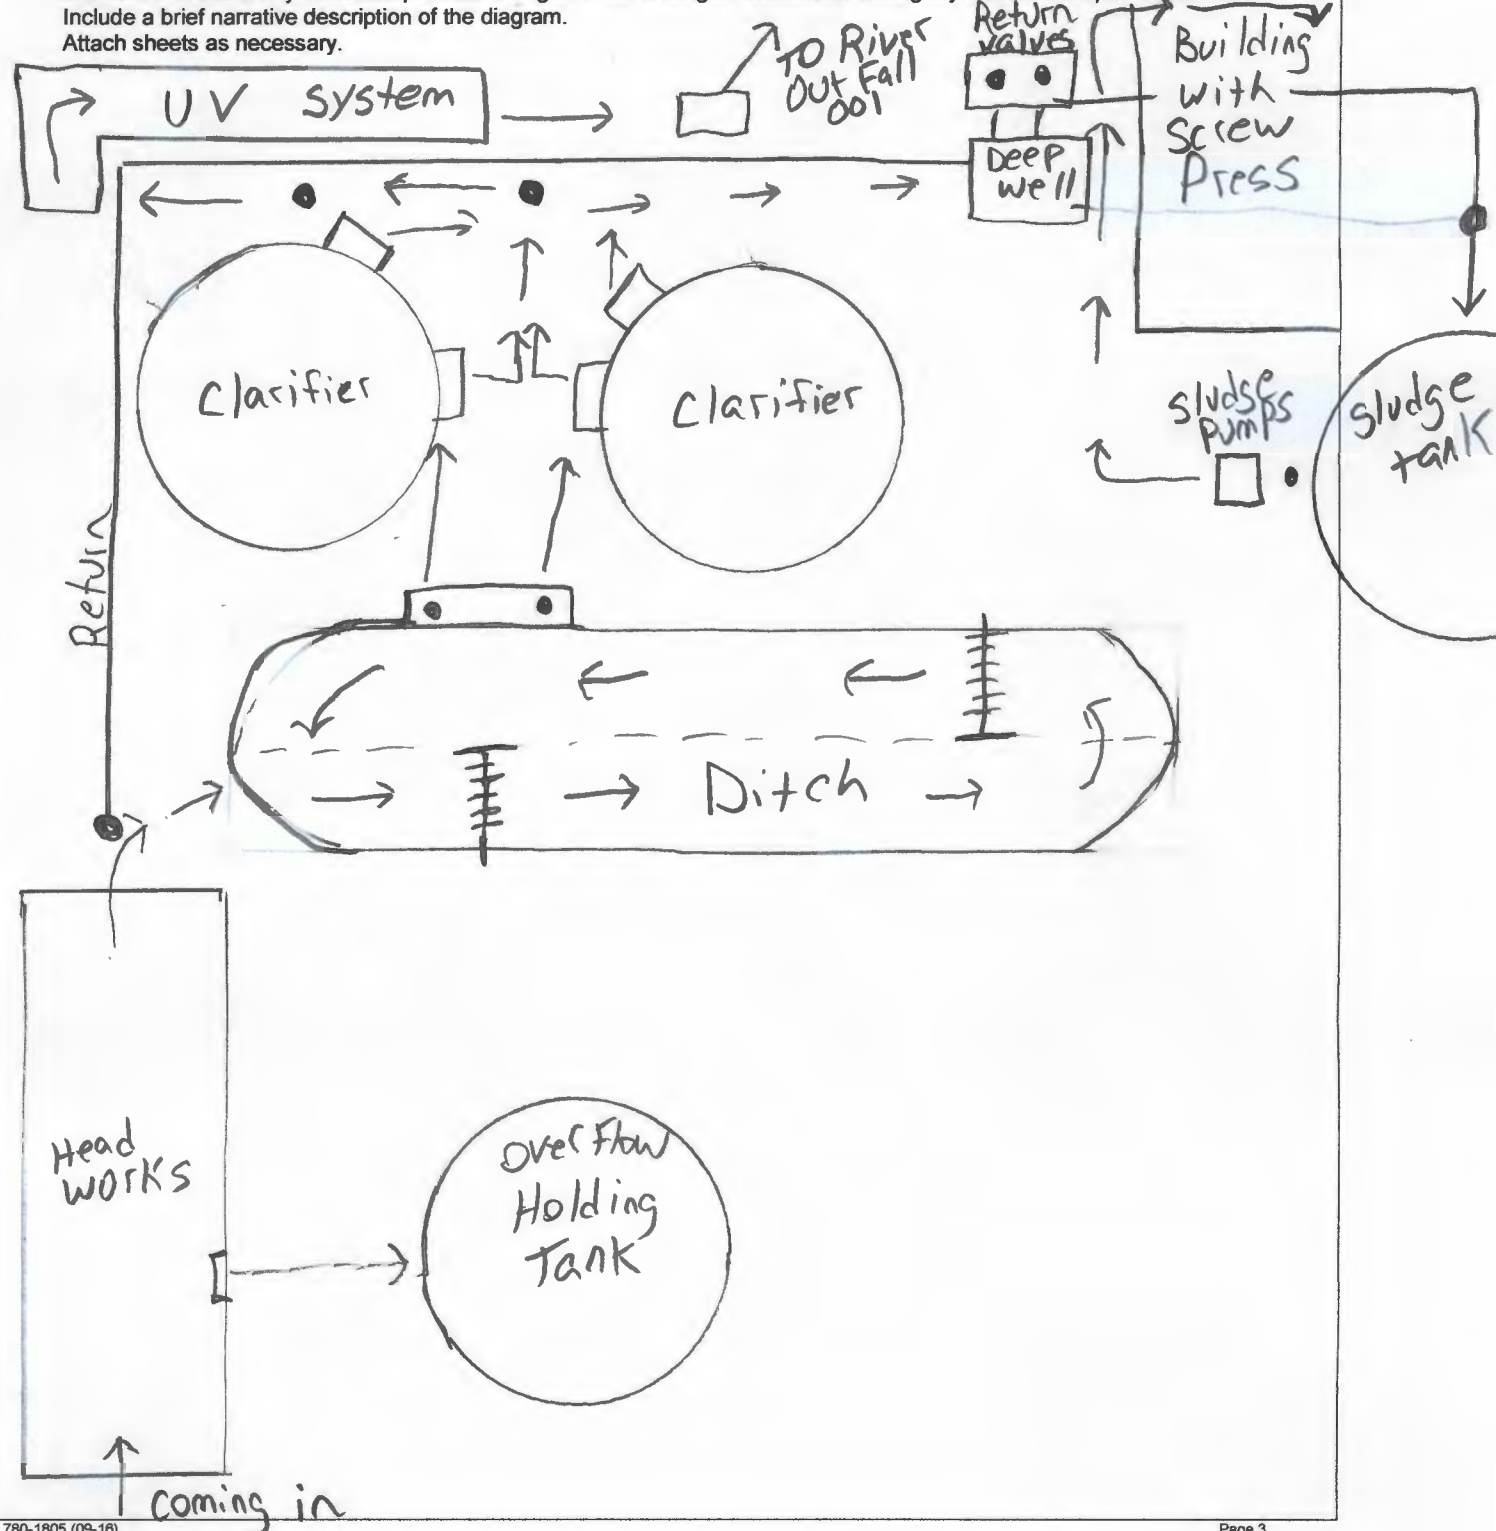 Include a brief narrative description of the diagram.
Attach sheets as necessary.
UV System
TO River
Out Fall
001
Return
valves
Deep
well
Building
with
Screw
Press
Clarifier
Clarifier
Sludge
pumps
Sludge
tank
Return
Ditch
Head
works
Over Flow
Holding
Tank
Coming in
780-1805 (09-16)
Page 3